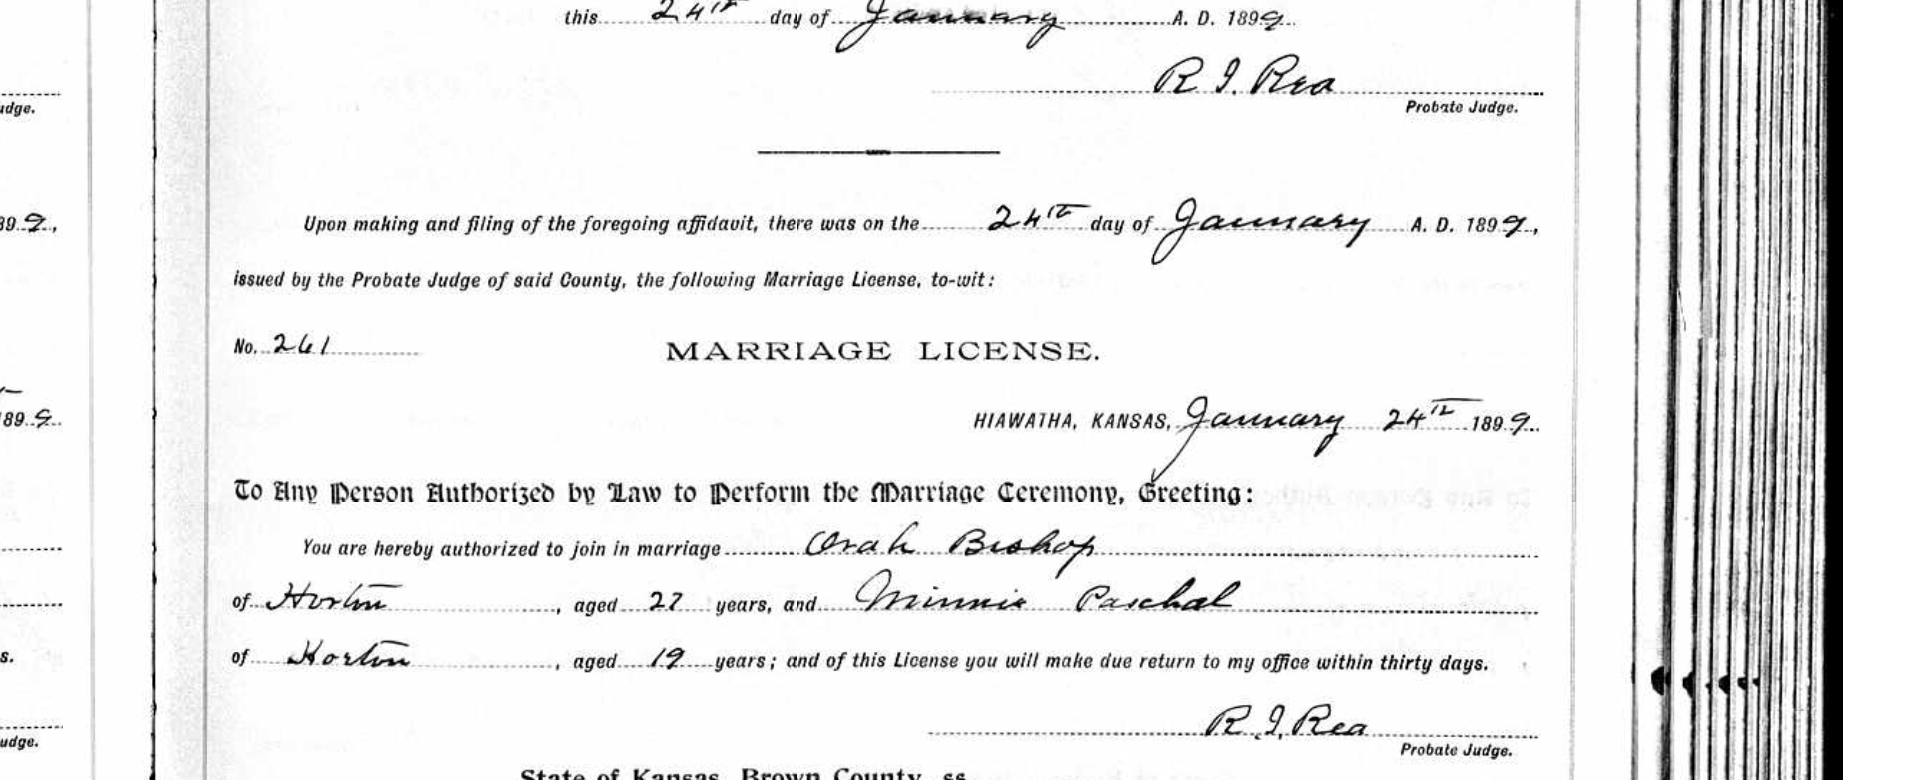 this 24th day of January A. D. 1899
R I. Rea
udge.
Probate Judge.
Upon making and filing of the foregoing affidavit, there was on the 24th day of January A. D. 1899,
89 9,
issued by the Probate Judge of said County, the following Marriage License, to-wit:
No. 261
MARRIAGE LICENSE.
HIAWATHA, KANSAS, January 24th 1899.
189 9
To Any Person Authorized by Law to Perform the Marriage Ceremony, Greeting:
You are hereby authorized to join in marriage Orah Bishop
of Horton, aged 27 years, and Minnie Paschal
of Horton, aged 19 years; and of this License you will make due return to my office within thirty days.
s.
R. I. Rea
udge.
Probate Judge.
State of Kansas, Brown County, ss